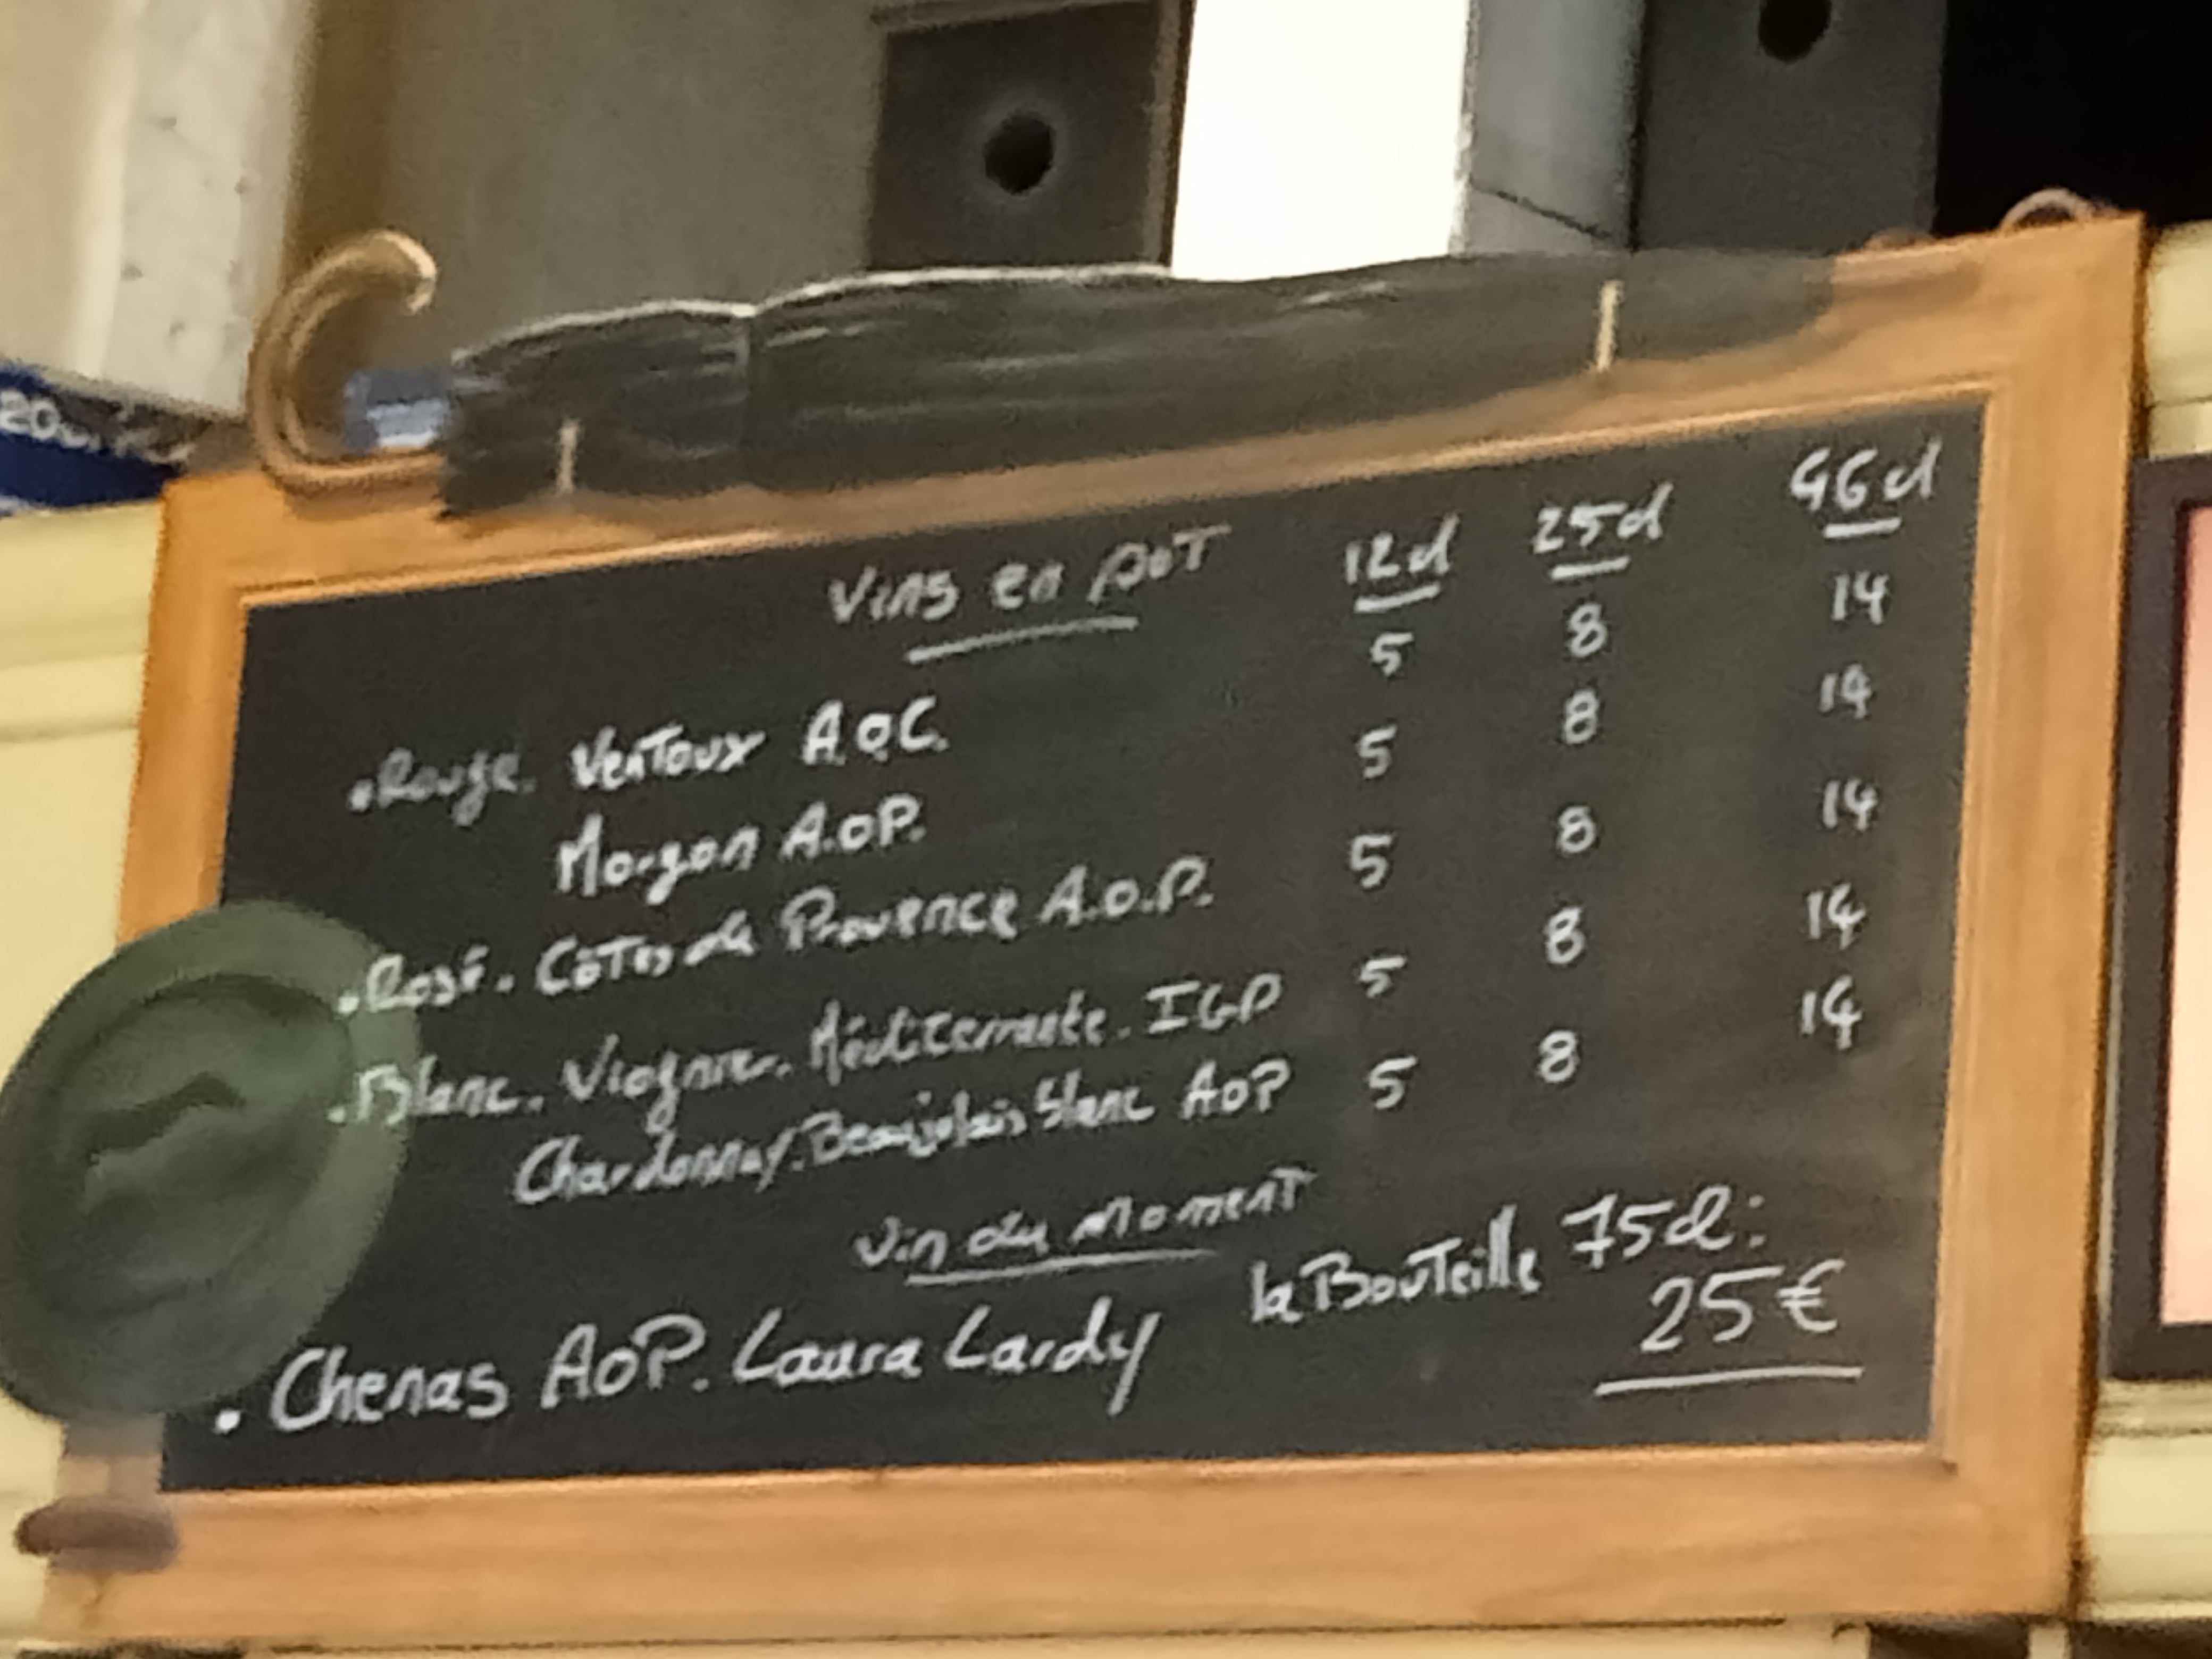 Vins en poT 12cl 25cl 46cl
.Rouge. VenToux A.O.C. 5 8 14
Morgon A.O.P. 5 8 14
.Rosé. CôTes de Provence A.O.P. 5 8 14
.Blanc. Viognier. Méditerranée. IGP 5 8 14
Chardonnay. Beaujolais blanc AOP 5 8 14
Vin du MomenT
la BouTeille 75cl:
. Chenas AOP. Laura Lardy 25€